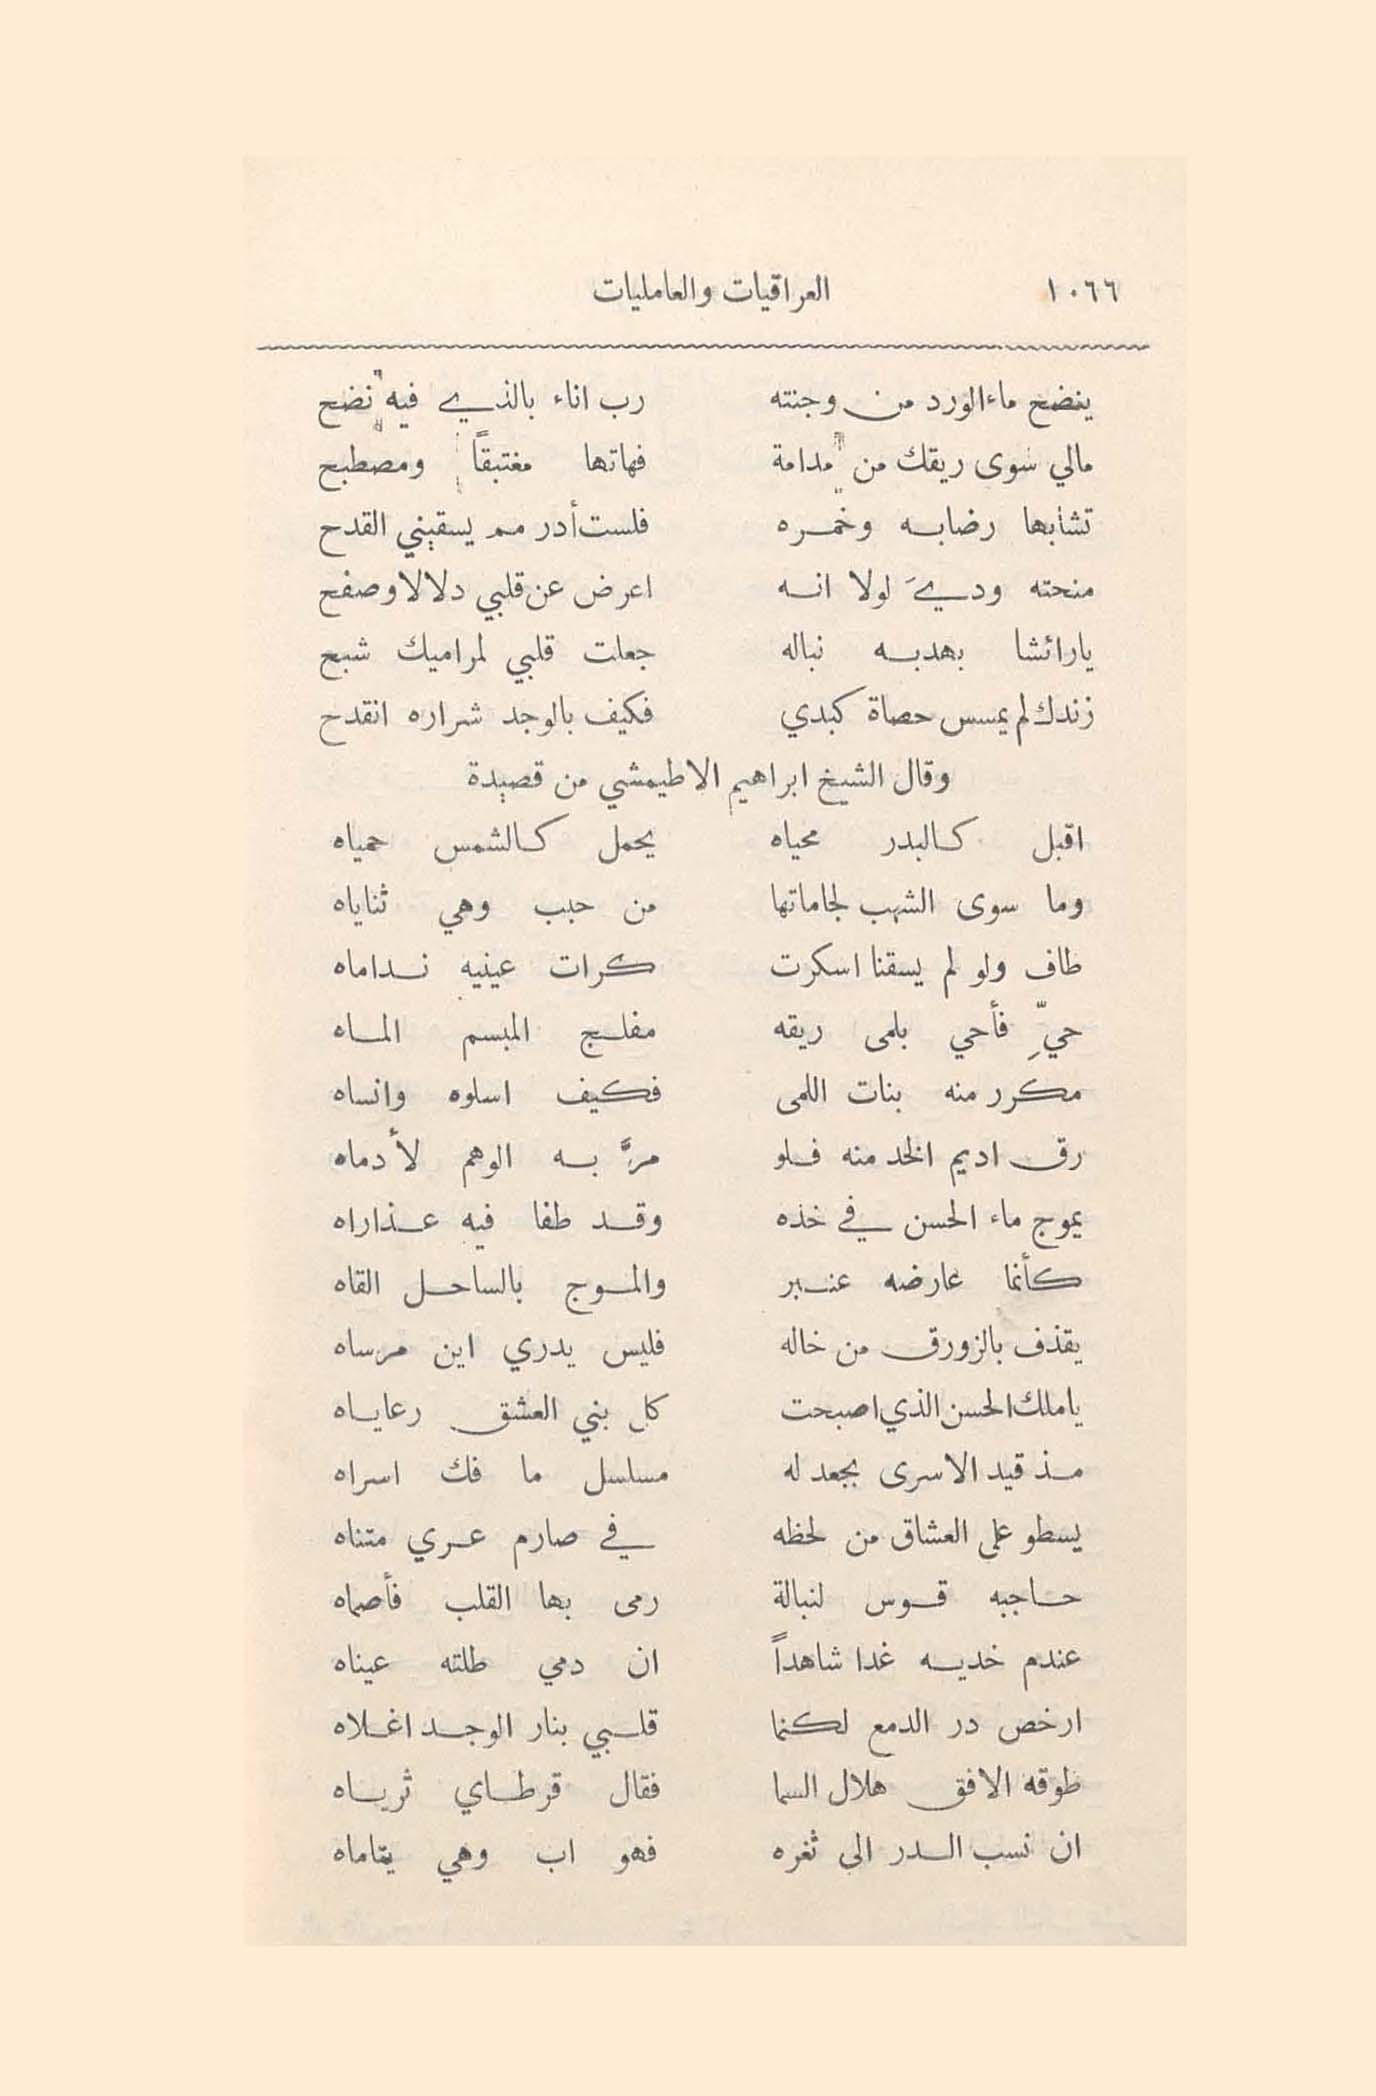 ١٠٦٦ العراقيات والعامليات
ينضح ماء الورد من وجنته رب اناء بالذي فيه نضح
مالي سوى ريقك من مدامة فهاتها مغتبقاً ومصطبح
تشابها رضابه وخمره فلست أدر مم يسقيني القدح
منحته وديَ لولا انه اعرض عن قلبي دلالا وصفح
يارائشا بهدبه نباله جعلت قلبي لمراميك شبح
زندك لم يمسس حصاة كبدي فكيف بالوجد شراره انقدح
وقال الشيخ ابراهيم الاطيمشي من قصيدة
اقبل كالبدر محياه يحمل كالشمس حمياه
وما سوى الشهب لجاماتها من حبب وهي ثناياه
طاف ولو لم يسقنا اسكرت كرات عينيه نداماه
حيِّ فأحي بلمى ريقه مفلج المبسم الماه
مكرر منه بنات اللمى فكيف اسلوه وانساه
رق اديم الخد منه فلو مرَّ به الوهم لأدماه
يموج ماء الحسن في خذه وقد طفا فيه عذاراه
كأنما عارضه عنبر والموج بالساحل القاه
يقذف بالزورق من خاله فليس يدري اين مرساه
ياملك الحسن الذي اصبحت كل بني العشق رعاياه
مذ قيد الاسرى بجعد له مسلسل ما فك اسراه
يسطو على العشاق من لحظه في صارم عري متناه
حاجبه قوس لنبالة رمى بها القلب فأصماه
عندم خديه غدا شاهداً ان دمي طلته عيناه
ارخص در الدمع لكنما قلبي بنار الوجد اغلاه
طوقه الافق هلال السما فقال قرطاي ثرياه
ان نسب الدر الى ثغره فهو اب وهي يتاماه